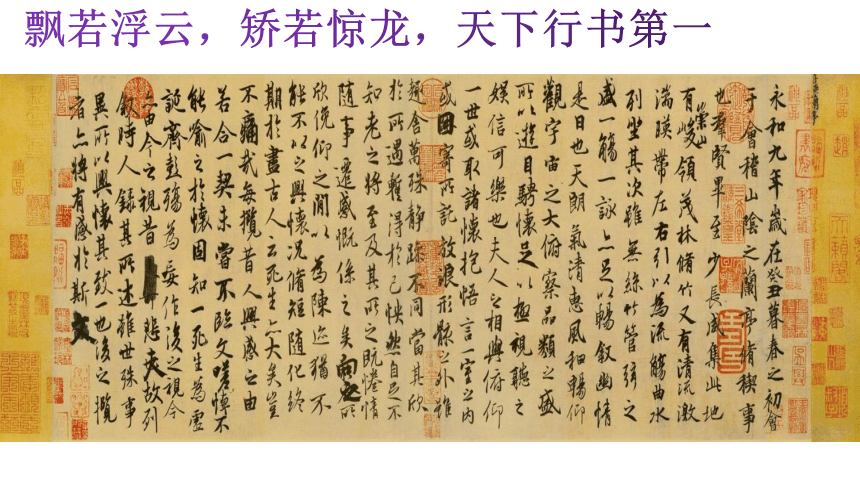 飘若浮云，矫若惊龙，天下行书第一
永和九年歲在癸丑暮春之初會
于會稽山陰之蘭亭脩稧事
也羣賢畢至少長咸集此地
有崇山峻領茂林脩竹又有清流激
湍暎帶左右引以為流觴曲水
列坐其次雖無絲竹管弦之
盛一觴一詠亦足以暢叙幽情
是日也天朗氣清惠風和暢仰
觀宇宙之大俯察品類之盛
所以遊目騁懷足以極視聽之
娛信可樂也夫人之相與俯仰
一世或取諸懷抱悟言一室之內
或因寄所託放浪形骸之外雖
趣舍萬殊靜躁不同當其欣
於所遇暫得於己怏然自足不
知老之將至及其所之既惓情
隨事遷感慨係之矣向之所
欣俛仰之閒以為陳迹猶不
能不以之興懷況脩短隨化終
期於盡古人云死生亦大矣豈
不痛哉每攬昔人興感之由
若合一契未嘗不臨文嗟悼不
能喻之於懷固知一死生為虛
誕齊彭殤為妄作後之視今
亦由今之視昔悲夫故列
叙時人錄其所述雖世殊事
異所以興懷其致一也後之攬
者亦將有感於斯文